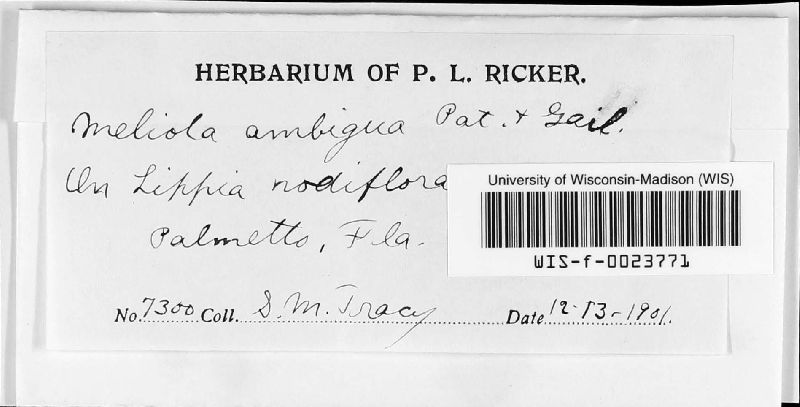 HERBARIUM OF P. L. RICKER.
Meliola ambigua Pat. & Gail.
On Lippia nodiflora
Palmetto, Fla.
No. 7300 Coll. S. M. Tracy Date 12-13-1901.
University of Wisconsin-Madison (WIS)
WIS-f-0023771